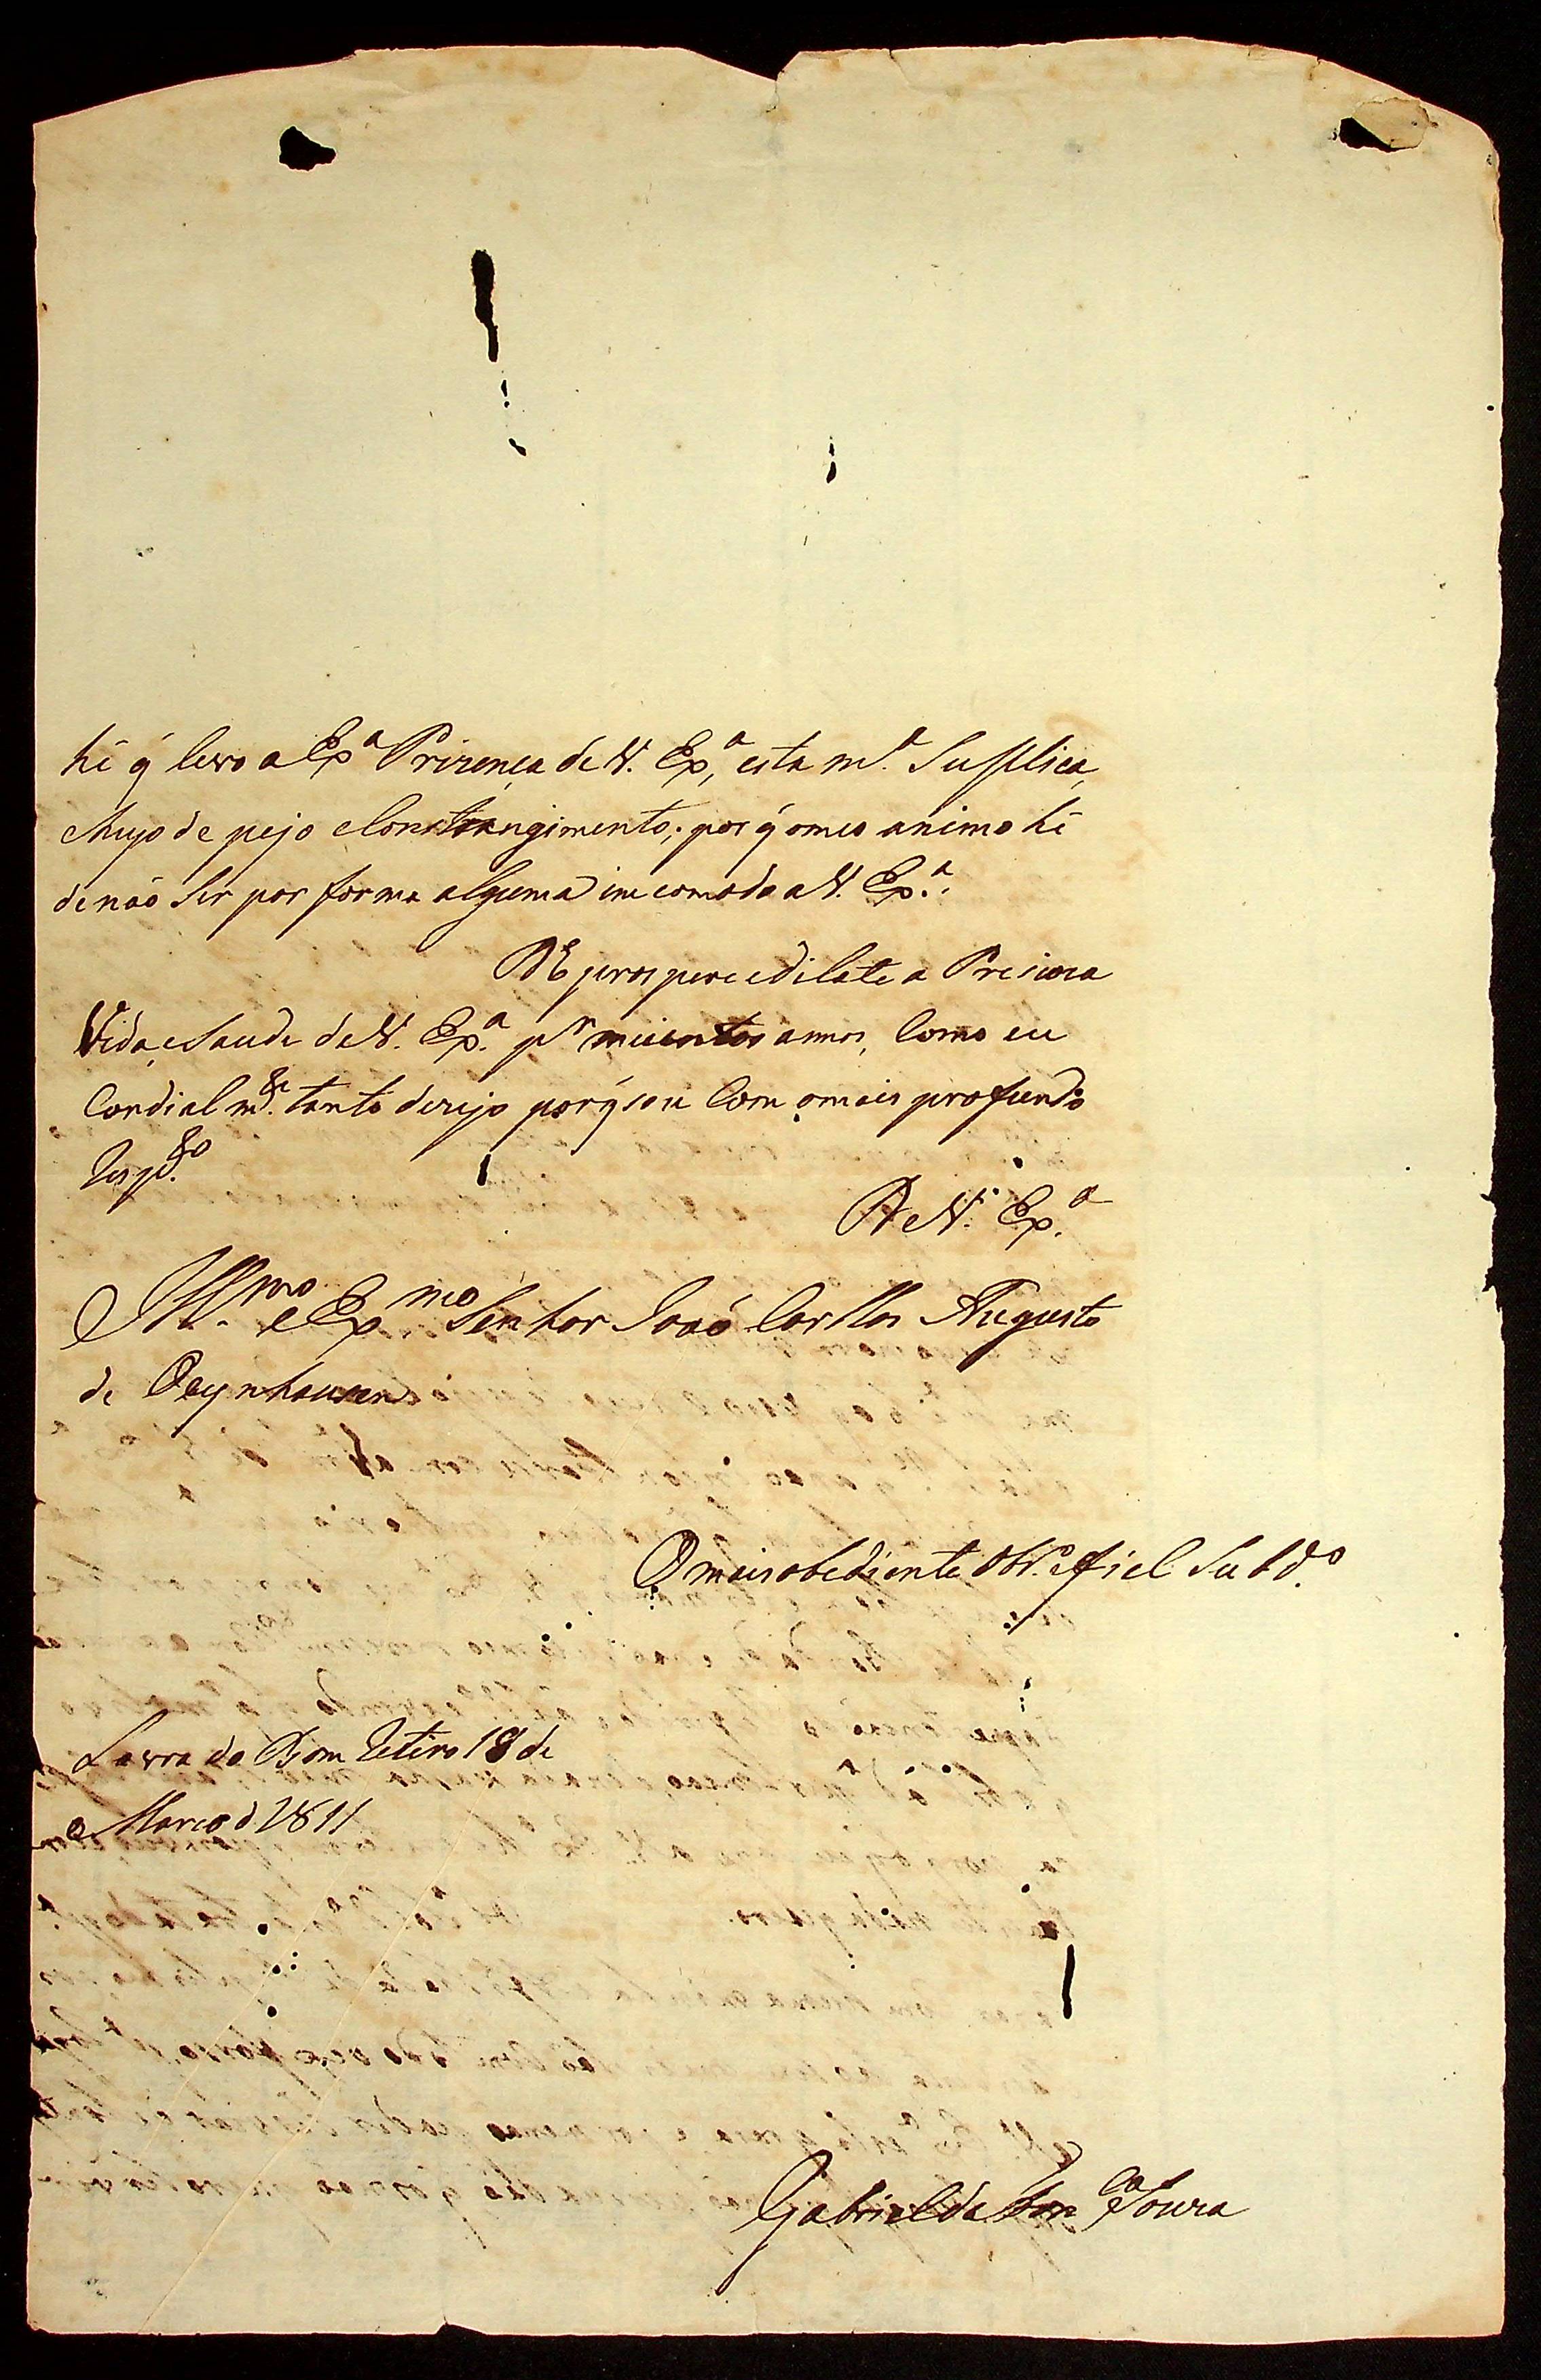 hé q̃ levo a Exª Prezença de V. Exª, esta mª. Supplica,
chujo de pejo e Constrangimento; por q̃ o meo animo hé
de não Ser por forma alguma incomodo a V. Exª.
DE prospere e dilate a Presioza
Vida, e Saude de V. Exª. pʳ muintos annos, Como eu
Cordialmᵗᵉ. tanto dezejo porq̃ sou Com o mais profundo
Respᵗᵒ.
De V. Exª.
Illᵐᵒ. e Exᵐᵒ Senhor João Carllos Augusto
de Oeynhausen
O mais obediente e fiel Subdº.
Lavra do Bom Retiro 18 de
Março d 1811
Gabriel da Fonᶜᵃ Soura